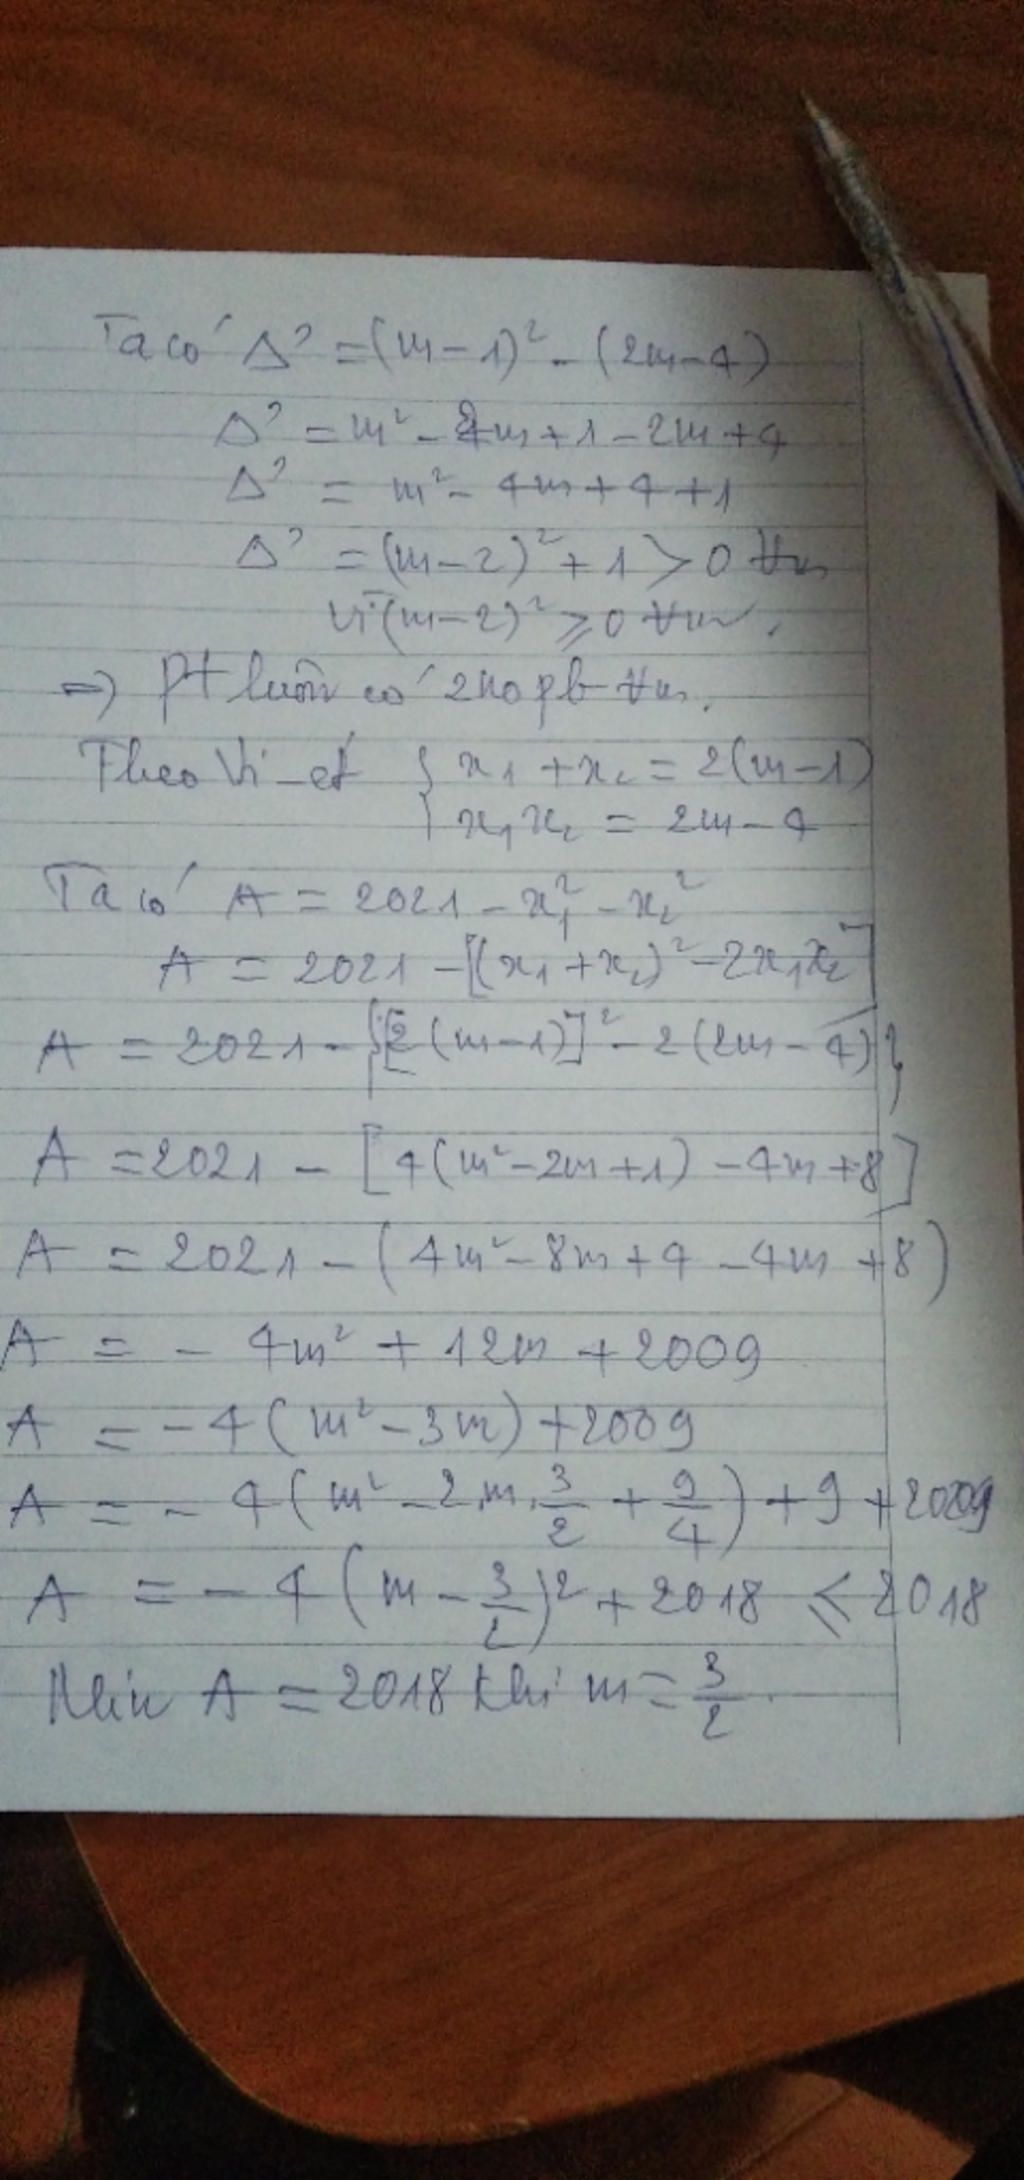 Ta có Δ' = (m-1)² - (2m-4)
Δ' = m² - 2m+1-2m+4
Δ' = m² - 4m+4+1
Δ' = (m-2)²+1>0 ∀m
Vì (m-2)² ≥0 ∀m.
=> pt luôn có 2no pb ∀m.
Theo Vi-et { x₁ + x₂ = 2(m-1)
x₁x₂ = 2m-4
Ta có A = 2021 - x₁² - x₂²
A = 2021 - [(x₁+x₂)² - 2x₁x₂]
A = 2021 - {[2(m-1)]² - 2(2m-4)}
A = 2021 - [4(m²-2m+1) - 4m+8]
A = 2021 - (4m²-8m+4-4m+8)
A = - 4m² + 12m + 2009
A = -4(m²-3m)+2009
A = - 4(m² - 2.m.3/2 + 9/4) + 9 + 2009
A = - 4(m - 3/2)² + 2018 ≤ 2018
Min A = 2018 khi m = 3/2.